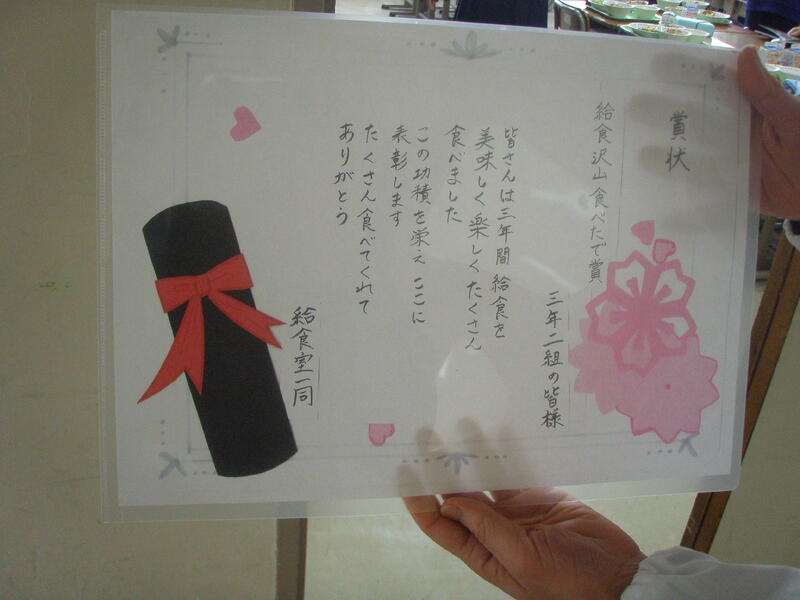 賞状
給食沢山食べたで賞
三年二組の皆様
皆さんは三年間給食を
美味しく楽しくたくさん
食べました
この功積を栄え ここに
表彰します
たくさん食べてくれて
ありがとう
給食室一同